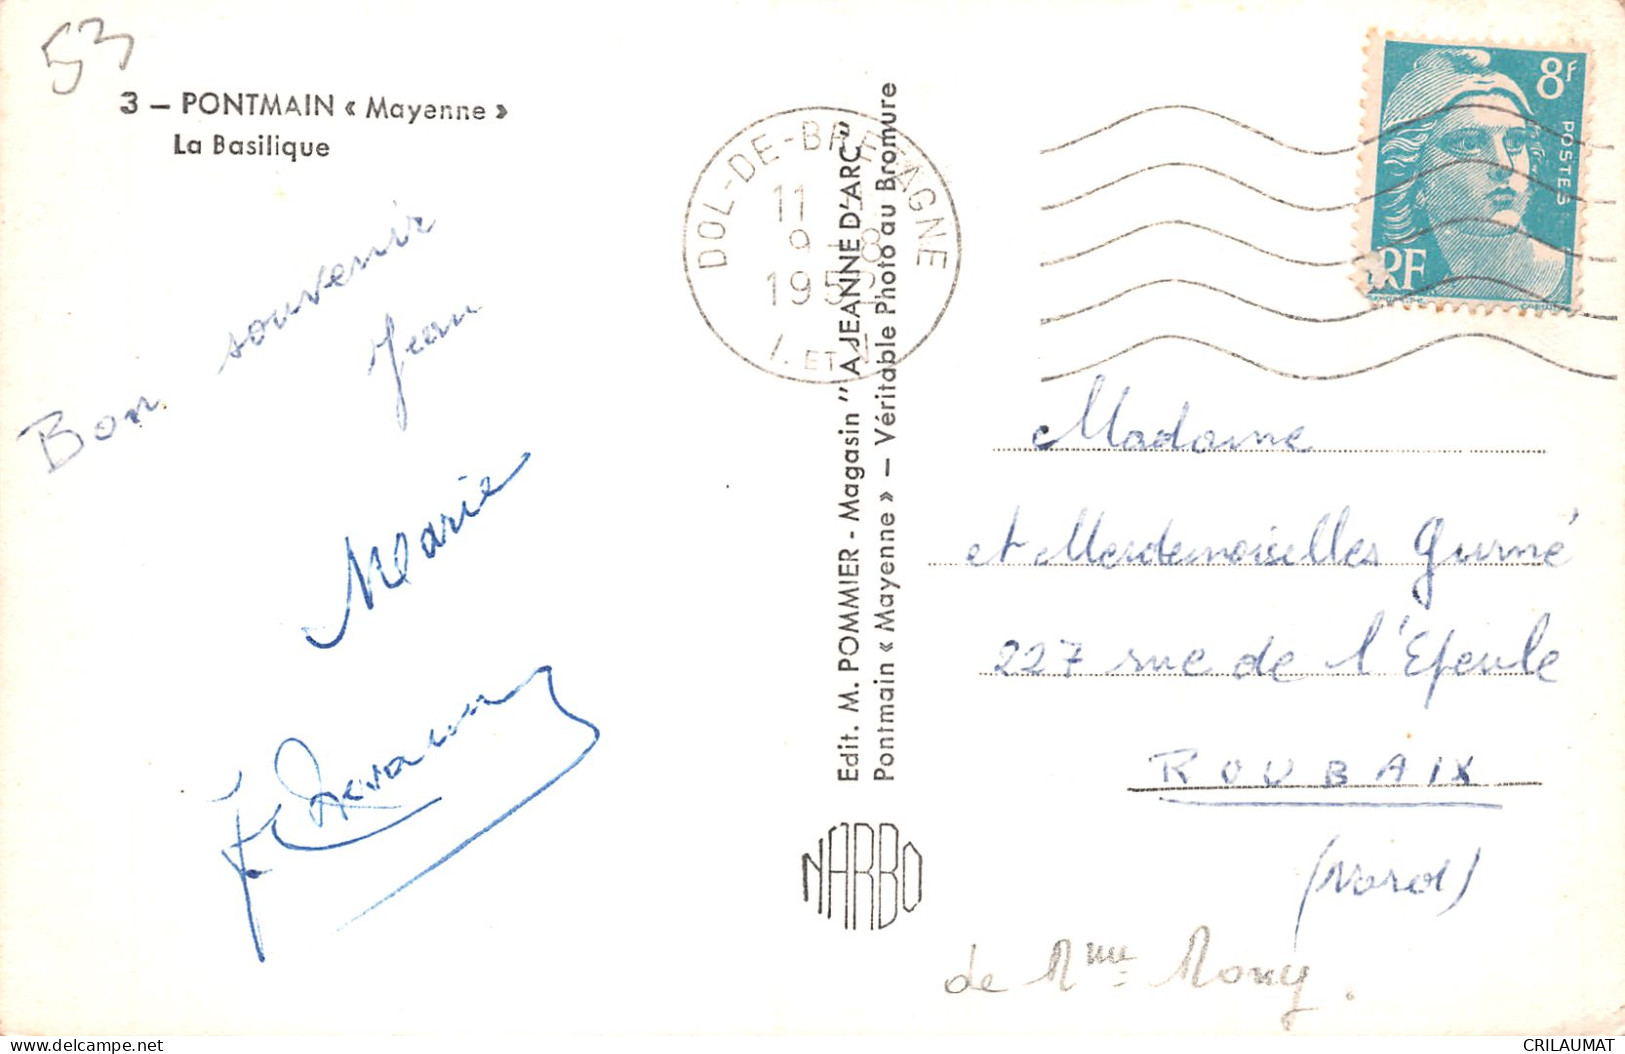 53
3 – PONTMAIN « Mayenne »
La Basilique
Bon souvenir
Jean
Marie
DOL-DE-BRETAGNE
11 H
9 - 8
195
I. ET V.
Edit. M. POMMIER - Magasin "A JEANNE D'ARC"
Pontmain « Mayenne » – Véritable Photo au Bromure
NARBO
8F
POSTES
RF
Madame
et Mesdemoiselles Gurmé
227 rue de l'Epeule
ROUBAIX
(Nord)
de Mme Mouy.
CRILAUMAT